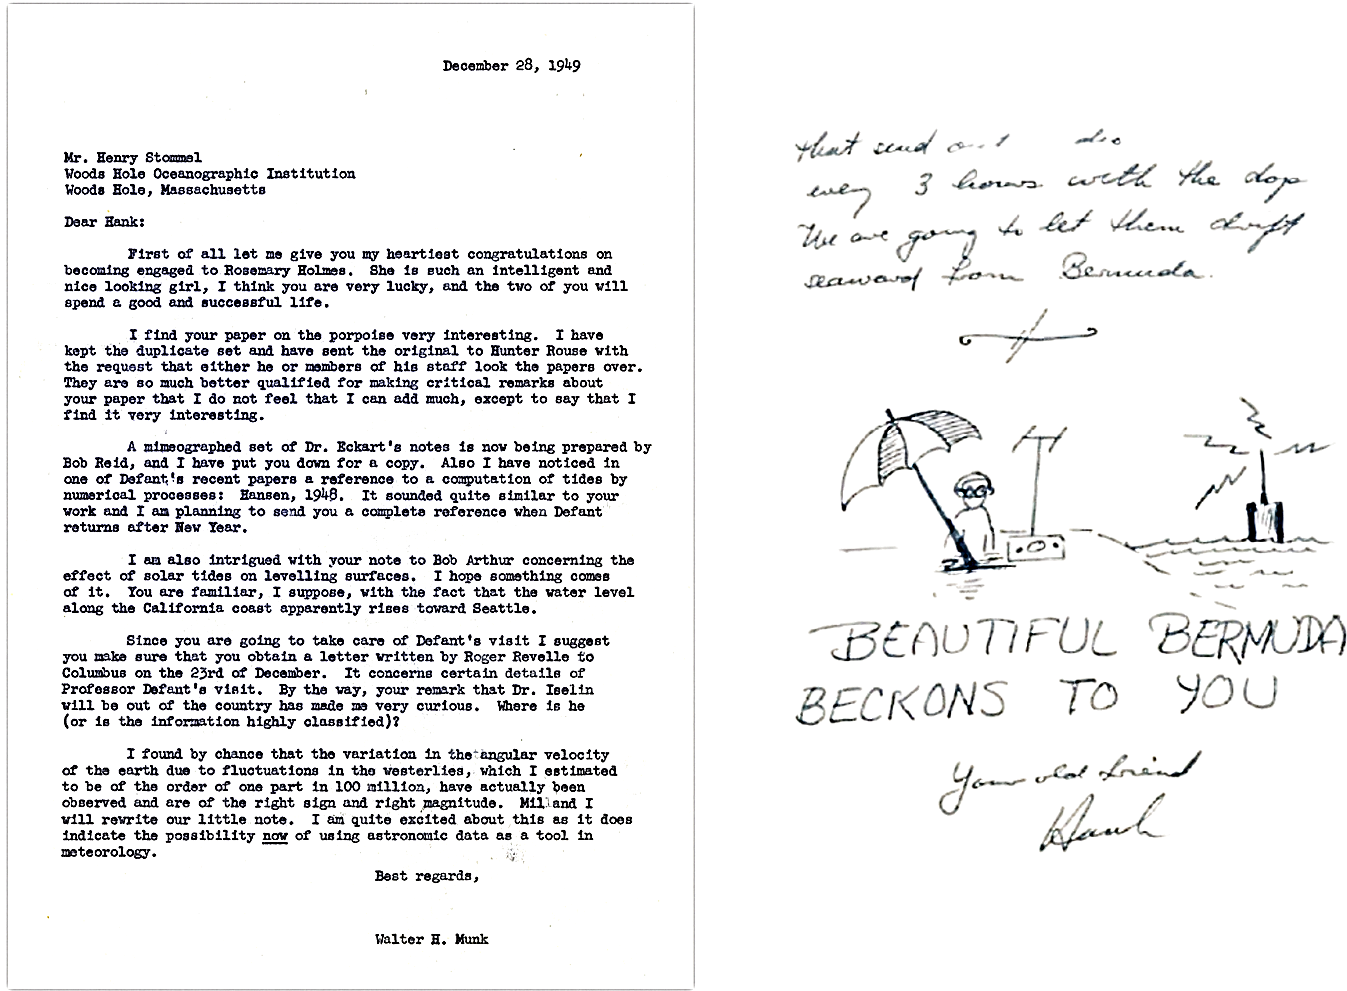 December 28, 1949
Mr. Henry Stommel
Woods Hole Oceanographic Institution
Woods Hole, Massachusetts
Dear Hank:
First of all let me give you my heartiest congratulations on
becoming engaged to Rosemary Holmes. She is such an intelligent and
nice looking girl, I think you are very lucky, and the two of you will
spend a good and successful life.
I find your paper on the porpoise very interesting. I have
kept the duplicate set and have sent the original to Hunter Rouse with
the request that either he or members of his staff look the papers over.
They are so much better qualified for making critical remarks about
your paper that I do not feel that I can add much, except to say that I
find it very interesting.
A mimeographed set of Dr. Eckart's notes is now being prepared by
Bob Reid, and I have put you down for a copy. Also I have noticed in
one of Defant's recent papers a reference to a computation of tides by
numerical processes: Hansen, 1948. It sounded quite similar to your
work and I am planning to send you a complete reference when Defant
returns after New Year.
I am also intrigued with your note to Bob Arthur concerning the
effect of solar tides on levelling surfaces. I hope something comes
of it. You are familiar, I suppose, with the fact that the water level
along the California coast apparently rises toward Seattle.
Since you are going to take care of Defant's visit I suggest
you make sure that you obtain a letter written by Roger Revelle to
Columbus on the 23rd of December. It concerns certain details of
Professor Defant's visit. By the way, your remark that Dr. Iselin
will be out of the country has made me very curious. Where is he
(or is the information highly classified)?
I found by chance that the variation in the angular velocity
of the earth due to fluctuations in the westerlies, which I estimated
to be of the order of one part in 100 million, have actually been
observed and are of the right sign and right magnitude. Mil and I
will rewrite our little note. I am quite excited about this as it does
indicate the possibility now of using astronomic data as a tool in
meteorology.
Best regards,
Walter H. Munk
that send
every 3 hours with the dop
We are going to let them drift
seaward from Bermuda.
BEAUTIFUL BERMUDA
BECKONS TO YOU
Your old friend
Hank